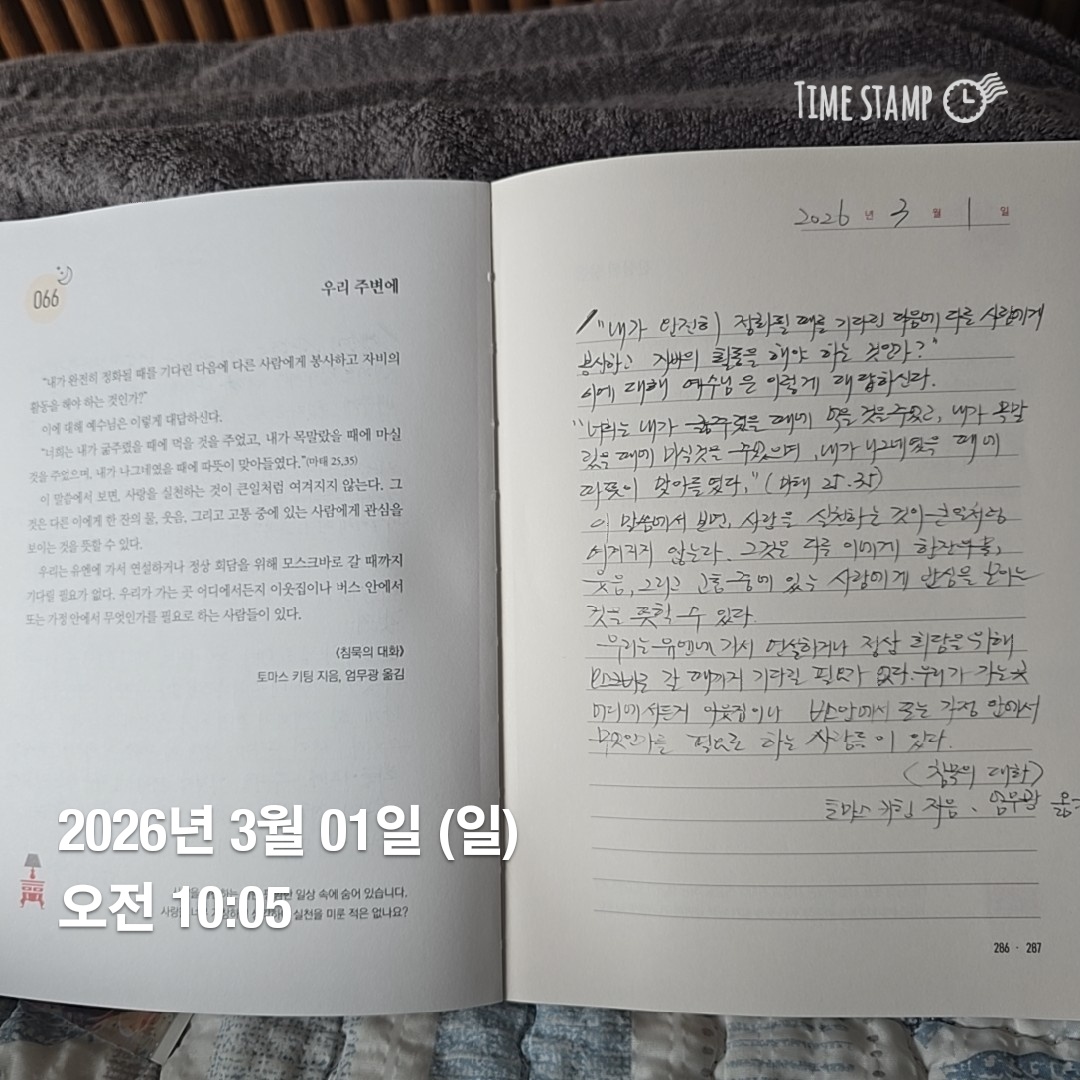 TIME STAMP
066
우리 주변에
"내가 완전히 정화될 때를 기다린 다음에 다른 사람에게 봉사하고 자비의
활동을 해야 하는 것인가?"
이에 대해 예수님은 이렇게 대답하신다.
"너희는 내가 굶주렸을 때에 먹을 것을 주었고, 내가 목말랐을 때에 마실
것을 주었으며, 내가 나그네였을 때에 따뜻이 맞아들였다."(마태 25,35)
이 말씀에서 보면, 사랑을 실천하는 것이 큰일처럼 여겨지지 않는다. 그
것은 다른 이에게 한 잔의 물, 웃음, 그리고 고통 중에 있는 사람에게 관심을
보이는 것을 뜻할 수 있다.
우리는 유엔에 가서 연설하거나 정상 회담을 위해 모스크바로 갈 때까지
기다릴 필요가 없다. 우리가 가는 곳 어디에서든지 이웃집이나 버스 안에서
또는 가정 안에서 무엇인가를 필요로 하는 사람들이 있다.
《침묵의 대화》
토마스 키팅 지음, 엄무광 옮김
일상 속에 숨어 있습니다.
실천을 미룬 적은 없나요?
2026년 3월 01일 (일)
오전 10:05
2026 년 3 월 1 일
"내가 완전히 정화될 때를 기다린 다음에 다른 사람에게
봉사하고 자비의 활동을 해야 하는 것인가?"
이에 대해 예수님은 이렇게 대답하신다.
"너희는 내가 굶주렸을 때에 먹을 것을 주었고, 내가 목말
랐을 때에 마실것을 주었으며, 내가 나그네였을 때에
따뜻이 맞아들였다." (마태 25.35)
이 말씀에서 보면, 사랑을 실천하는 것이 큰일처럼
여겨지지 않는다. 그것은 다른 이에게 한잔의 물,
웃음, 그리고 고통 중에 있는 사람에게 관심을 보이는
것을 뜻할 수 있다.
우리는 유엔에 가서 연설하거나 정상 회담을 위해
모스크바로 갈 때까지 기다릴 필요가 없다. 우리가 가는 곳
어디에서든지 이웃집이나 버스안에서 또는 가정 안에서
무엇인가를 필요로 하는 사람들이 있다.
(침묵의 대화)
토마스 키팅 지음. 엄무광
286 · 287